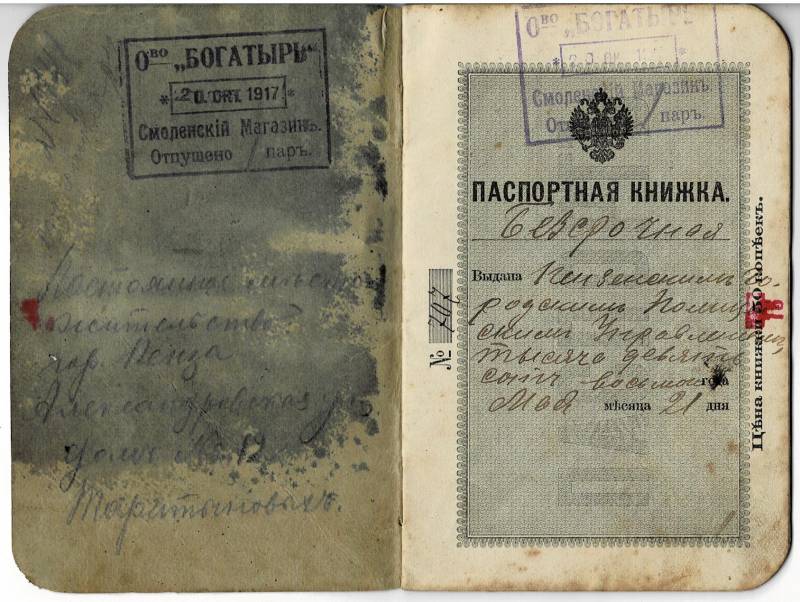 Ово „БОГАТЫРЬ“
* 20. ОКТ. 1917 *
Смоленскій Магазинъ.
Отпущено / паръ.
Постоянное мѣсто
жительство
гор Пенза
Александровская
домъ № 12
Ово „БОГАТЫРЬ
Смоленскій Магазинъ
паръ.
ПАСПОРТНАЯ КНИЖКА.
Безсрочная
Выдана Пензенскимъ Го-
родскимъ Полицей-
скимъ Управленіемъ,
тысяча девять
сотъ восьмого года
Мая мѣсяца 21 дня
№ 707
Цѣна книжки 50 копѣекъ.